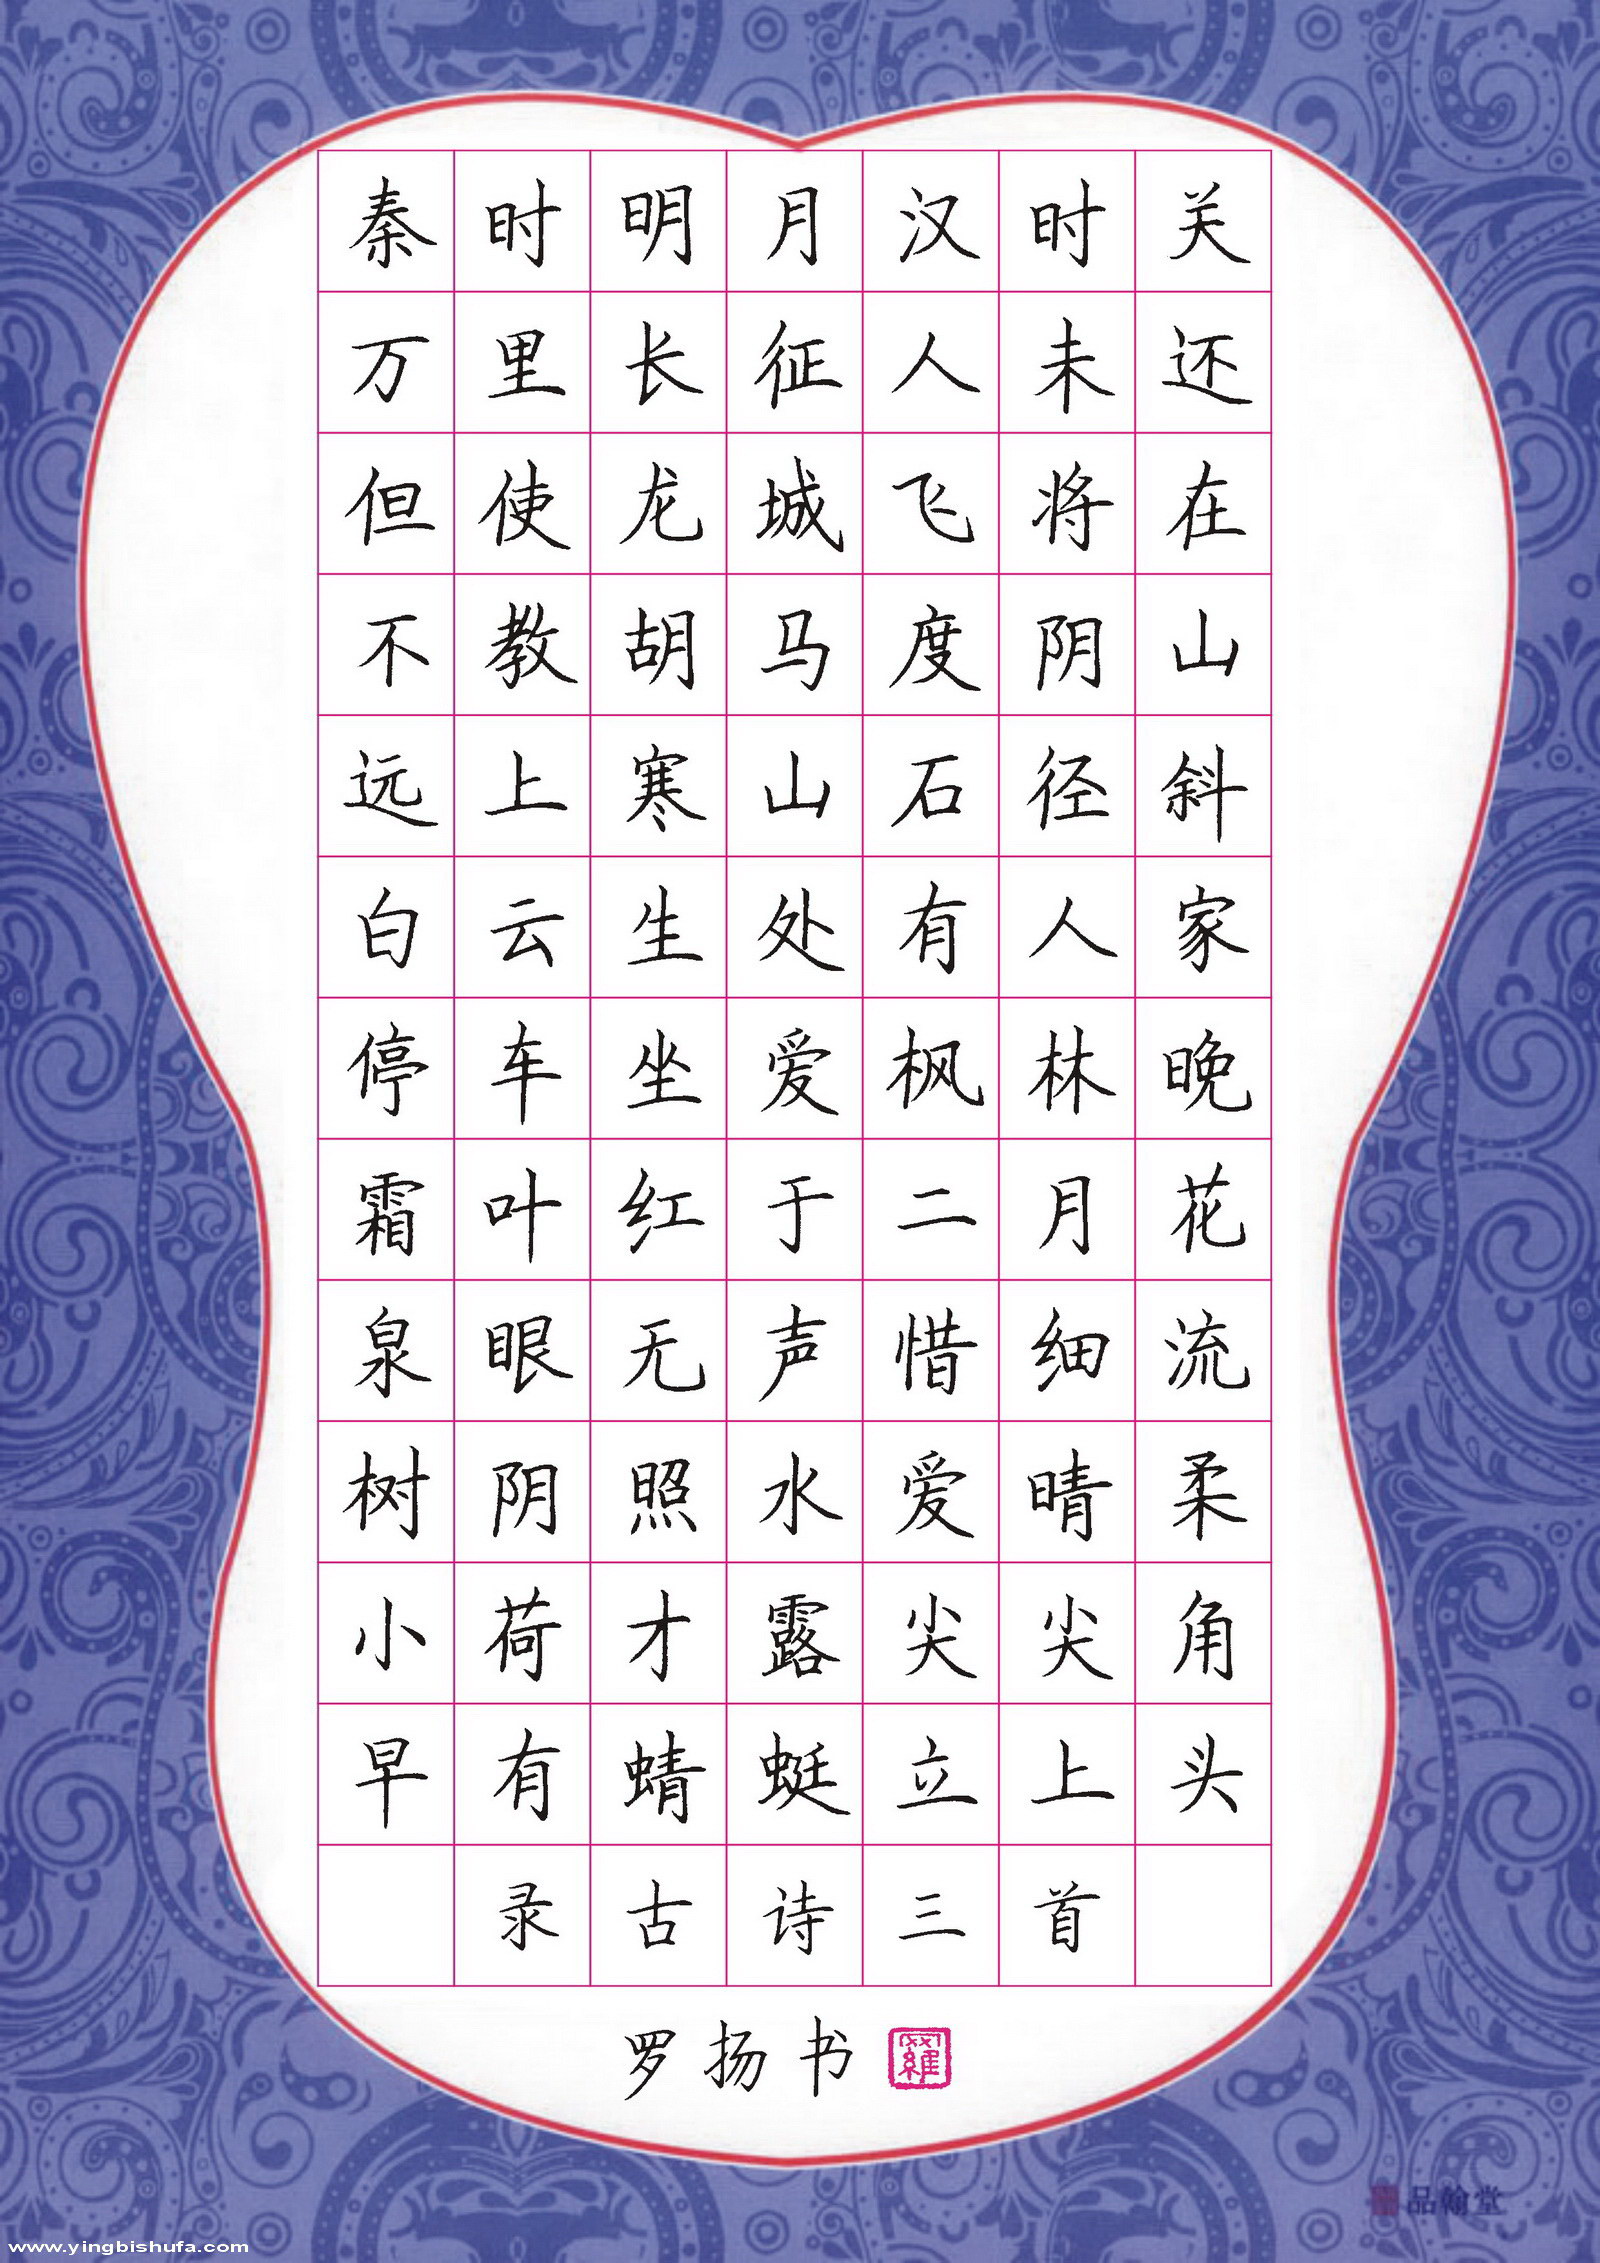 秦时明月汉时关
万里长征人未还
但使龙城飞将在
不教胡马度阴山
远上寒山石径斜
白云生处有人家
停车坐爱枫林晚
霜叶红于二月花
泉眼无声惜细流
树阴照水爱晴柔
小荷才露尖尖角
早有蜻蜓立上头
录古诗三首
罗扬书
羅
品翰堂
www.yingbishufa.com